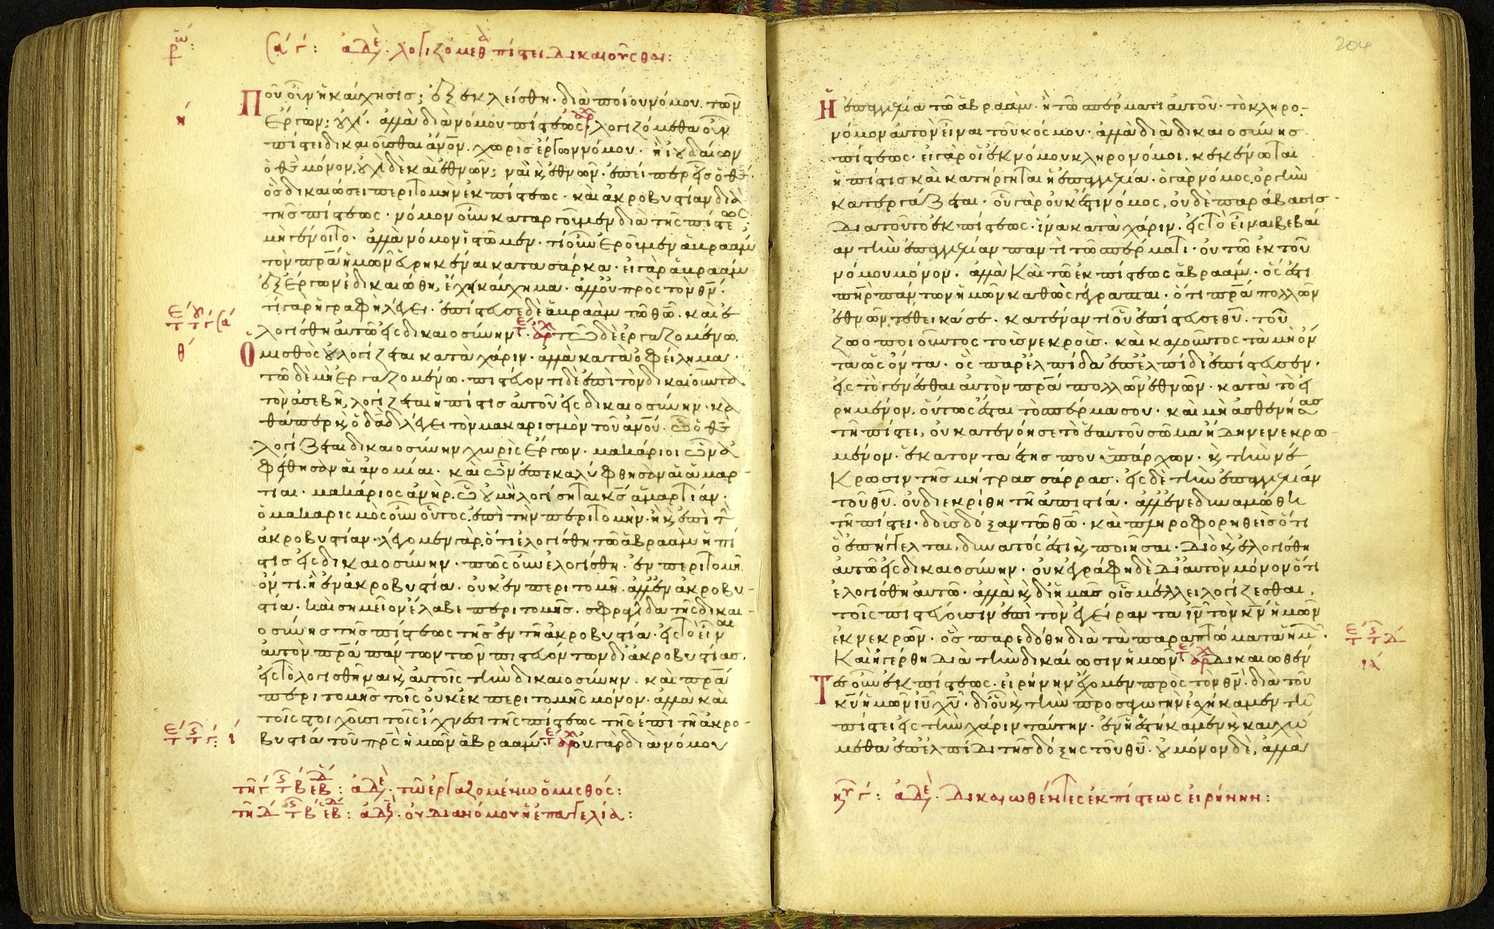 ρω:
Σα γ: ἀδελ. λογιζόμεθα πίστει δικαιοῦσθαι:
η
Ποῦ οὖν ἡ καύχησις; ἐξεκλείσθη. διὰ ποίου νόμου. τῶν
ἔργων; οὐχί. ἀλλὰ διὰ νόμου πίστεως. λογιζόμεθα οὖν
πίστει δικαιοῦσθαι ἄνον. χωρὶς ἔργων νόμου. ἢ ἰουδαίων
ὁ θς μόνον, οὐχὶ δὲ καὶ ἐθνῶν; ναὶ κ ἐθνῶν. ἐπείπερ εἷς ὁ θς.
ὃς δικαιώσει περιτομὴν ἐκ πίστεως. καὶ ἀκροβυστίαν διὰ
τῆς πίστεως. νόμον οὖν καταργοῦμεν διὰ τῆς πίστεως;
μὴ γένοιτο. ἀλλὰ νόμον ἱστῶμεν. τί οὖν ἐροῦμεν ἀβραὰμ
τὸν πρα ἡμῶν εὑρηκέναι κατὰ σάρκα. εἰ γὰρ ἀβραὰμ
ἐξ ἔργων ἐδικαιώθη, ἔχει καύχημα. ἀλλ οὐ πρὸς τὸν θν.
τί γὰρ ἡ γραφὴ λέγει. ἐπίστευσε δὲ ἀβραὰμ τῶ θω. καὶ ἐ
λογίσθη αὐτῶ εἰς δικαιοσύνην. τῶ δὲ ἐργαζομένω
θ
Ὁ μισθὸς οὐ λογίζεται κατὰ χάριν. ἀλλὰ κατὰ ὀφείλημα.
τῶ δὲ μὴ ἐργαζομένω. πιστεύοντι δὲ ἐπὶ τὸν δικαιοῦντα
τὸν ἀσεβῆ, λογίζεται ἡ πίστις αὐτοῦ εἰς δικαιοσύνην. κα
θάπερ κ ὁ δαδ λέγει τὸν μακαρισμὸν τοῦ ἀνου. ὧ ὁ θς
λογίζεται δικαιοσύνην χωρὶς ἔργων. μακάριοι ὧν ἀ
φέθησαν αἱ ἀνομίαι. καὶ ὧν ἐπεκαλύφθησαν αἱ ἁμαρ-
τίαι. μακάριος ἀνὴρ. ὧ οὐ μὴ λογίσηται κς ἁμαρτίαν.
ὁ μακαρισμὸς οὖν οὗτος. ἐπὶ τὴν περιτομὴν. ἢ κ ἐπὶ τὴν
ἀκροβυστίαν. λέγομεν γὰρ, ὅτι ἐλογίσθη τῶ ἀβραὰμ ἡ πί
στις εἰς δικαιοσύνην. πῶς οὖν ἐλογίσθη. ἐν περιτομῆ
ὄντι. ἢ ἐν ἀκροβυστία. οὐκ ἐν περιτομῆ. ἀλλ ἐν ἀκροβυ-
στία. καὶ σημεῖον ἔλαβε περιτομῆς. σφραγῖδα τῆς δικαι-
οσύνης τῆς πίστεως τῆς ἐν τῆ ἀκροβυστία. εἰς τὸ εἶναι
αὐτὸν πρα πάντων τῶν πιστευόντων δι ἀκροβυστίας.
εἰς τὸ λογισθῆναι κ αὐτοῖς τὴν δικαιοσύνην. καὶ πρα
περιτομῆς τοῖς οὐκ ἐκ περιτομῆς μόνον. ἀλλὰ καὶ
τοῖς στοιχοῦσι τοῖς ἴχνεσι τῆς πίστεως τῆς ἐπὶ τῆ ἀκρο-
ι
βυστία τοῦ πρς ἡμῶν ἀβραάμ. οὐ γὰρ διὰ νόμου
ἀδελ. τῶ ἐργαζομένω ὁ μισθός:
ἀδελ. οὐ διὰ νόμου ἡ ἐπαγγελία:
204
Ἡ ἐπαγγελία τῶ ἀβραὰμ. ἢ τῶ σπέρματι αὐτοῦ. τὸ κληρο-
νόμον αὐτὸν εἶναι τοῦ κόσμου. ἀλλὰ διὰ δικαιοσύνης
πίστεως. εἰ γὰρ οἱ ἐκ νόμου κληρονόμοι, κεκένωται
ἡ πίστις καὶ κατήργηται ἡ ἐπαγγελία. ὁ γὰρ νόμος ὀργὴν
κατεργάζεται. οὗ γὰρ οὐκ ἔστι νόμος, οὐδὲ παράβασις.
Διατοῦτο ἐκ πίστεως. ἵνα κατὰ χάριν. εἰς τὸ εἶναι βεβαί
αν τὴν ἐπαγγελίαν παντὶ τῶ σπέρματι. οὐ τῶ ἐκ τοῦ
νόμου μόνον. ἀλλὰ καὶ τῶ ἐκ πίστεως ἀβραάμ. ὅς ἐστι
πηρ πάντων ἡμῶν καθὼς γέγραπται. ὅτι πρα πολλῶν
ἐθνῶν τέθεικά σε. κατέναντι οὗ ἐπίστευσε θυ. τοῦ
ζωοποιοῦντος τοὺς νεκρούς. καὶ καλοῦντος τὰ μὴ ὄν
τα ὡς ὄντα. ὃς παρ ἐλπίδα ἐπ ἐλπίδι ἐπίστευσεν.
εἰς τὸ γενέσθαι αὐτὸν πρα πολλῶν ἐθνῶν. κατὰ τὸ εἰ
ρημένον. οὕτως ἔσται τὸ σπέρμα σου. καὶ μὴ ἀσθενήσας
τῆ πίστει, οὐ κατενόησε τὸ ἑαυτοῦ σῶμα ἤδη νενεκρω-
μένον. ἑκατονταέτης που ὑπάρχων. κ τὴν νέ
κρωσιν τῆς μήτρας σάρρας. εἰς δὲ τὴν ἐπαγγελίαν
τοῦ θυ. οὐ διεκρίθη τῆ ἀπιστία. ἀλλ ἐνεδυναμώθη
τῆ πίστει. δοὺς δόξαν τῶ θω. καὶ πληροφορηθεὶς ὅτι
ὃ ἐπήγγελται, δυνατός ἐστι κ ποιῆσαι. Διὸ κ ἐλογίσθη
αὐτῶ εἰς δικαιοσύνην. οὐκ ἐγράφη δὲ δι αὐτὸν μόνον ὅτι
ἐλογίσθη αὐτῶ. ἀλλὰ κ δι ἡμᾶς οἷς μέλλει λογίζεσθαι.
τοῖς πιστεύουσιν ἐπὶ τὸν ἐγείραντα ιν τὸν κν ἡμῶν
ἐκ νεκρῶν. ὃς παρεδόθη διὰ τὰ παραπτώματα ἡμῶν.
ια
Καὶ ἠγέρθη διὰ τὴν δικαίωσιν ἡμῶν. Δικαιωθέν
Τες οὖν ἐκ πίστεως. εἰρήνην ἔχομεν πρὸς τὸν θν. διὰ τοῦ
κυ ἡμῶν ιυ χυ. δι οὗ κ τὴν προσαγωγὴν ἐσχήκαμεν τῆ
πίστει εἰς τὴν χάριν ταύτην. ἐν ἧ ἑστήκαμεν κ καυχώ
μεθα ἐπ ἐλπίδι τῆς δόξης τοῦ θυ. οὐ μόνον δὲ, ἀλλὰ
ἀδελ. Δικαιωθέντες ἐκ πίστεως εἰρήνην: